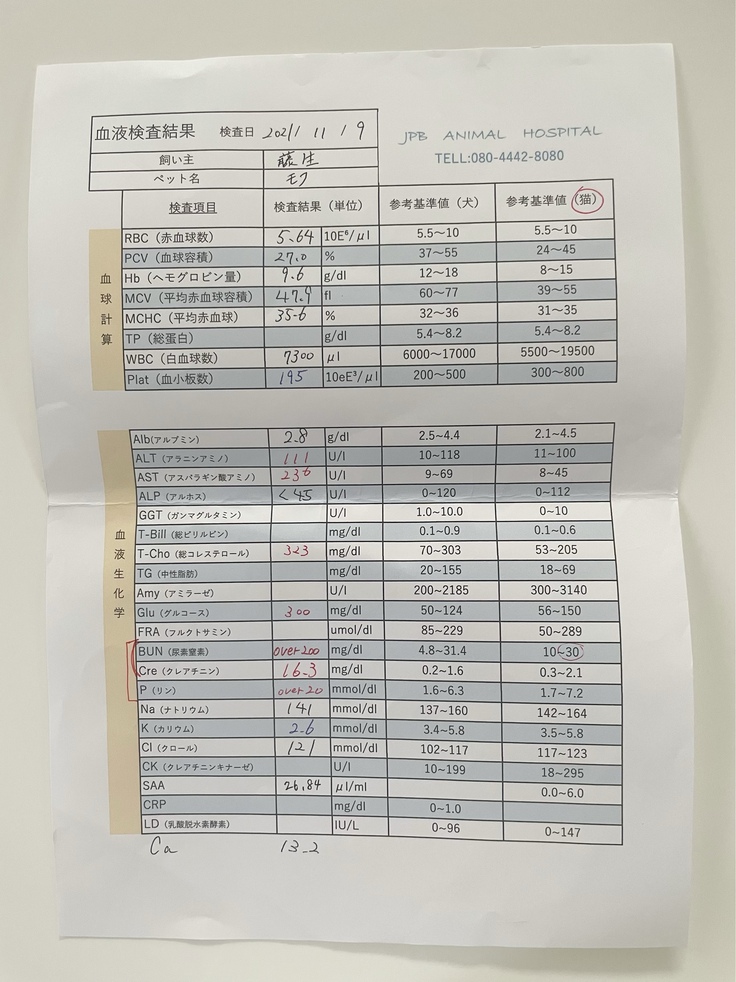 血液検査結果 検査日 2021 11 19
JPB ANIMAL HOSPITAL
TELL:080-4442-8080
飼い主 藤生
ペット名 モフ
検査項目 検査結果（単位） 参考基準値（犬） 参考基準値（猫）
血球計算
RBC（赤血球数） 5.64 10E⁶/μl 5.5～10 5.5～10
PCV（血球容積） 27.0 % 37～55 24～45
Hb（ヘモグロビン量） 9.6 g/dl 12～18 8～15
MCV（平均赤血球容積） 47.9 fl 60～77 39～55
MCHC（平均赤血球） 35.6 % 32～36 31～35
TP（総蛋白） g/dl 5.4～8.2 5.4～8.2
WBC（白血球数） 7300 μl 6000～17000 5500～19500
Plat（血小板数） 195 10eE³/μl 200～500 300～800
血液生化学
Alb(アルブミン) 2.8 g/dl 2.5~4.4 2.1~4.5
ALT（アラニンアミノ） 111 U/l 10~118 11~100
AST（アスパラギン酸アミノ） 236 U/l 9~69 8~45
ALP（アルホス） <45 U/l 0~120 0~112
GGT（ガンマグルタミン） U/l 1.0~10.0 0~10
T-Bill（総ビリルビン） mg/dl 0.1~0.9 0.1~0.6
T-Cho（総コレステロール） 323 mg/dl 70~303 53~205
TG（中性脂肪） mg/dl 20~155 18~69
Amy（アミラーゼ） U/l 200~2185 300~3140
Glu（グルコース） 300 mg/dl 50~124 56~150
FRA（フルクトサミン） umol/dl 85~229 50~289
BUN（尿素窒素） over200 mg/dl 4.8~31.4 10~30
Cre（クレアチニン） 16.3 mg/dl 0.2~1.6 0.3~2.1
P（リン） over20 mmol/dl 1.6~6.3 1.7~7.2
Na（ナトリウム） 141 mmol/dl 137~160 142~164
K（カリウム） 2.6 mmol/dl 3.4~5.8 3.5~5.8
Cl（クロール） 121 mmol/dl 102~117 117~123
CK（クレアチニンキナーゼ） U/l 10~199 18~295
SAA 26.84 μl/ml 0.0~6.0
CRP mg/dl 0~1.0
LD（乳酸脱水素酵素） IU/L 0~96 0~147
Ca 13.2